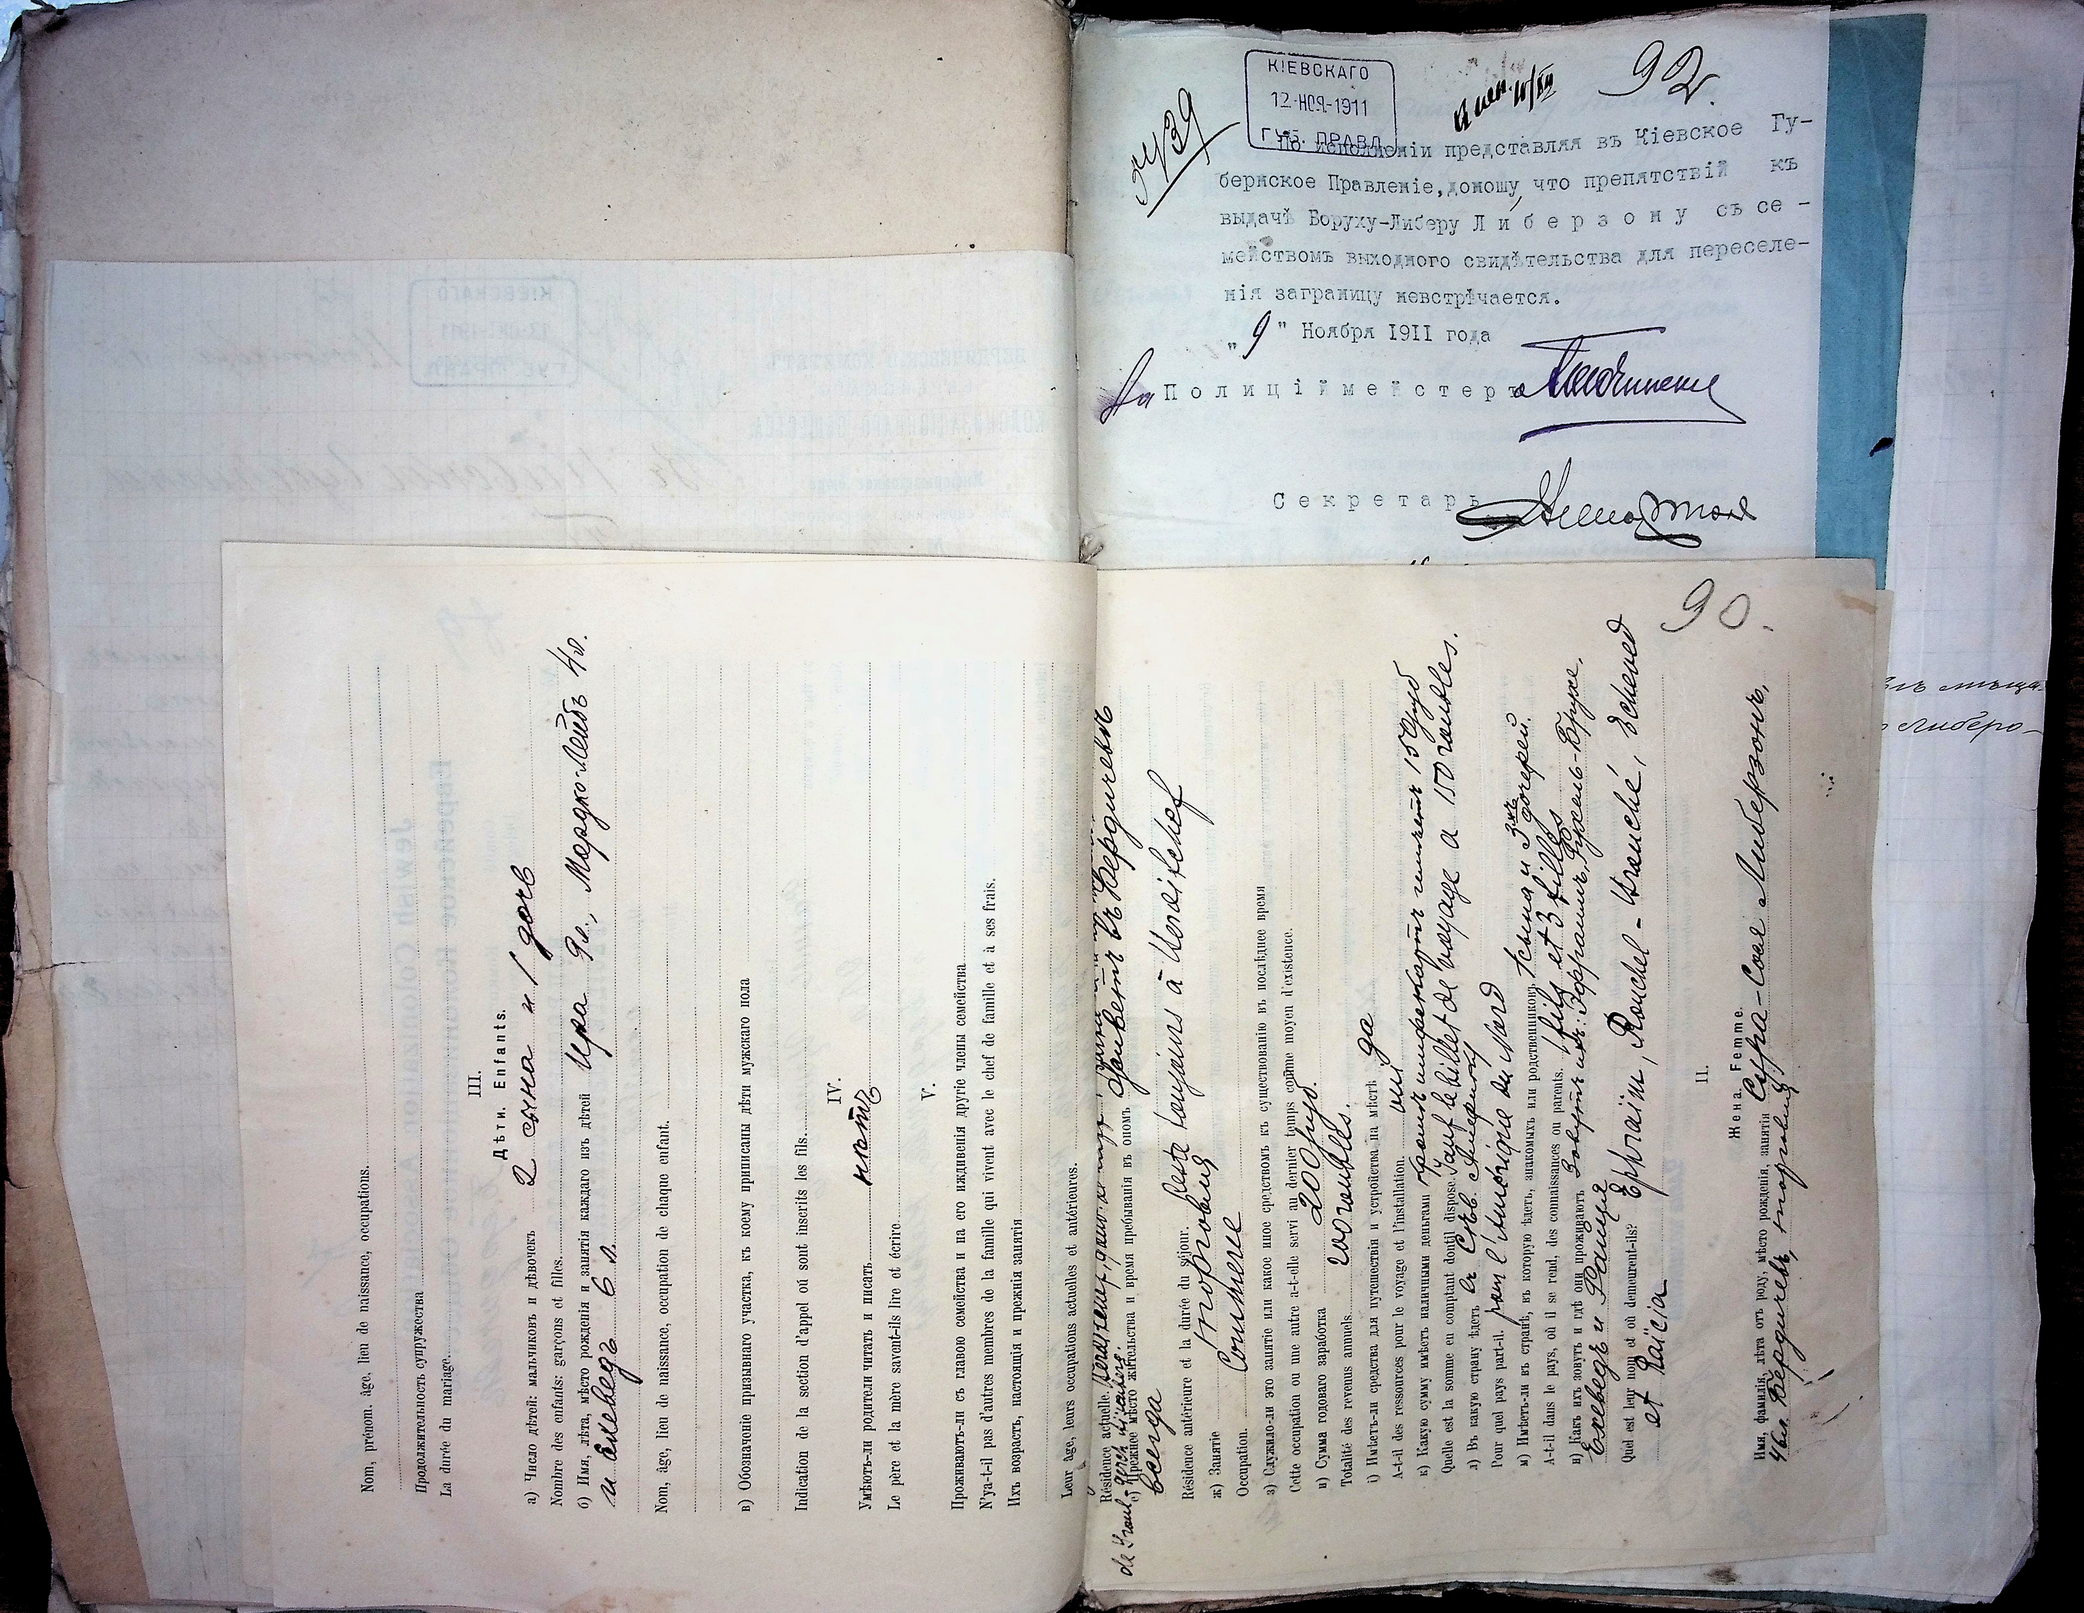 92.
КІЕВСКАГО
12-НОЯ-1911
ГУБ. ПРАВЛ.
По исполненіи представляя въ Кіевское Гу-
бернское Правленіе, доношу, что препятствій къ
выдачѣ Боруху-Либеру Либерзону съ се-
мействомъ выходного свидѣтельства для переселе-
нія заграницу невстрѣчается.
"9" Ноября 1911 года
За Полиціймейстера
Секретарь
90.
Résidence actuelle
е) Прежнее мѣсто жительства и время пребыванія въ ономъ Живетъ въ Бердичевѣ
всегда
Résidence antérieure et la durée du séjour. Reste toujours à Berditchef
ж) Занятіе торговля
Occupation. Commerce
з) Служило-ли это занятіе или какое иное средствомъ къ существованію въ послѣднее время
Cette occupation ou une autre a-t-elle servi au dernier temps comme moyen d'existence.
и) Сумма годоваго заработка 200 руб.
Totalité des revenus annuels. 200 roubles.
і) Имѣетъ-ли средства для путешествія и устройства на мѣстѣ да
A-t-il des ressources pour le voyage et l'installation. oui
к) Какую сумму имѣетъ наличными деньгами кромѣ шифскартъ имѣетъ 150 руб
Quelle est la somme en comptant dont il dispose. Sauf le billet de voyage a 150 roubles.
л) Въ какую страну ѣдетъ въ Сѣв. Америку
Pour quel pays part-il. pour l'Amérique du Nord
м) Имѣетъ-ли въ странѣ, въ которую ѣдетъ, знакомыхъ или родственниковъ. 1 сына и 3хъ дочерей.
A-t-il dans le pays, où il se rend, des connaissances ou parents. 1 fils et 3 filles
н) Какъ ихъ зовутъ и гдѣ они проживаютъ Зовутъ ихъ: Эфраимъ, Рухель-Брухе,
Ехеведъ и Раиця
Quel est leur nom et où demeurent-ils? Ephraïm, Rouchel-Brouché, Echeved
et Raïcia
II.
Жена. Femme.
Имя, фамилія, лѣта отъ роду, мѣсто рожденія, занятія Сура-Сося Либерзонъ,
46 л. Бердичевъ, торговля
Nom, prénom, âge, lieu de naissance, occupations.
Продолжительность супружества
La durée du mariage
III.
Дѣти. Enfants.
а) Число дѣтей: мальчиковъ и дѣвочекъ 2 сына и 1 дочь
Nombre des enfants: garçons et filles.
б) Имя, лѣта, мѣсто рожденія и занятія каждаго изъ дѣтей Ицка 9 л., Мордко-Лейбъ 4 л.
и Ехеведъ 6 л.
Nom, âge, lieu de naissance, occupation de chaque enfant.
в) Обозначеніе призывнаго участка, къ коему приписаны дѣти мужскаго пола
Indication de la section d'appel où sont inscrits les fils.
IV.
Умѣютъ-ли родители читать и писать нѣтъ
Le père et la mère savent-ils lire et écrire
V.
Проживаютъ-ли съ главою семейства и на его иждивенія другіе члены семейства
N'ya-t-il pas d'autres membres de la famille qui vivent avec le chef de famille et à ses frais.
Ихъ возрастъ, настоящія и прежнія занятія
Leur âge, leurs occupations actuelles et antérieures.